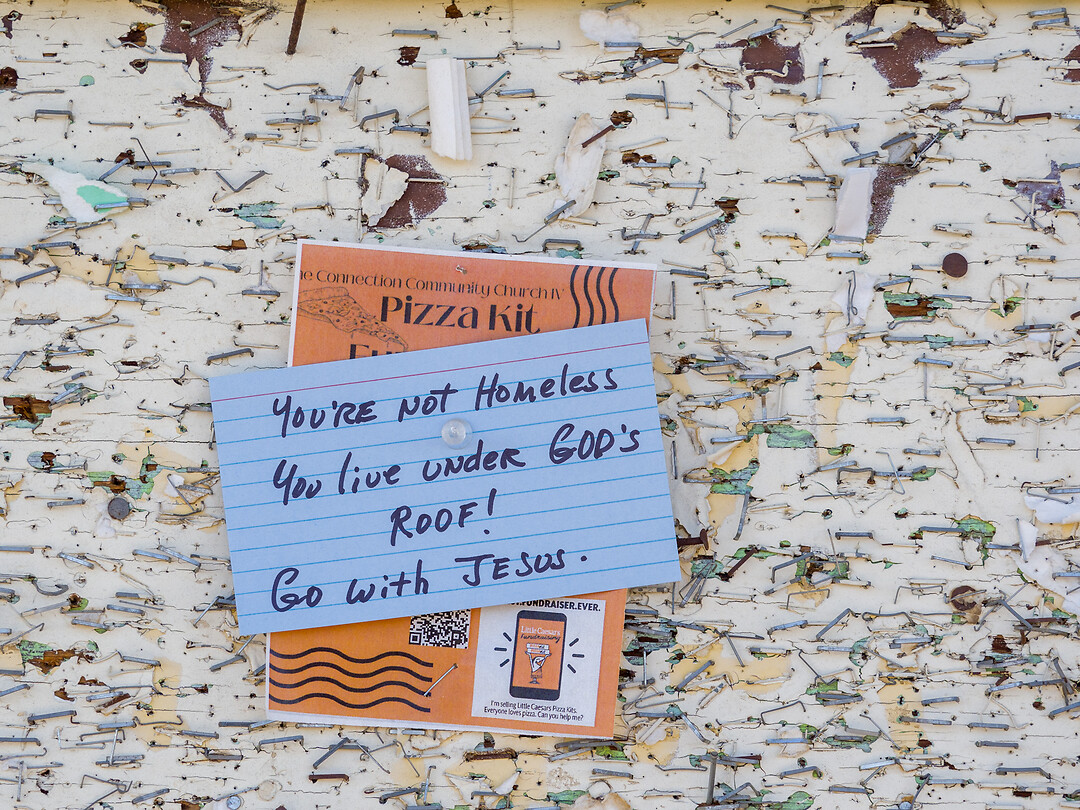 e Connection Community Church IV
Pizza Kit
You're not Homeless
You live under GOD's
ROOF!
Go with JESUS.
.FUNDRAISER.EVER.
Little Caesars
fundraising
I'm selling Little Caesars Pizza Kits.
Everyone loves pizza. Can you help me?